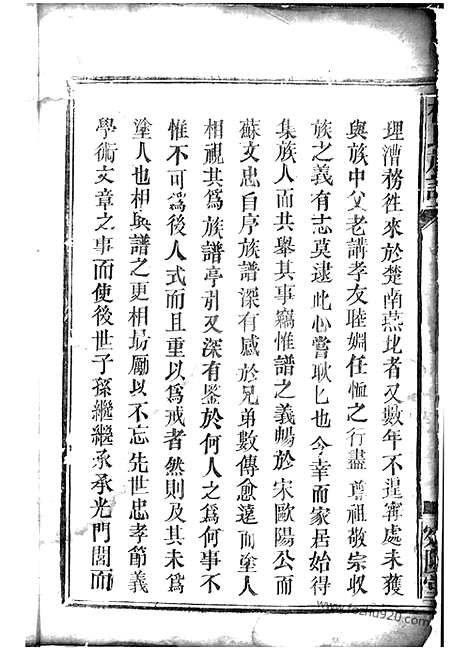 理漕務往來於楚南燕北者又數年不遑寧處未獲
與族中父老講孝友睦婣任恤之行盡尊祖敬宗收
族之義有志莫逮此心嘗耿匕也今幸而家居始得
集族人而共舉其事竊惟譜之義暢於宋歐陽公而
蘇文忠自序族譜深有感於兄弟數傳愈遠而塗人
相視其爲族譜亭引又深有鑒於何人之爲何事不
惟不可爲後人式而且重以爲戒者然則及其未爲
塗人也相與譜之更相勗勵以不忘先世忠孝節義
學術文章之事而使後世子孫繼繼承承光門閭而
www.fozhu920.com